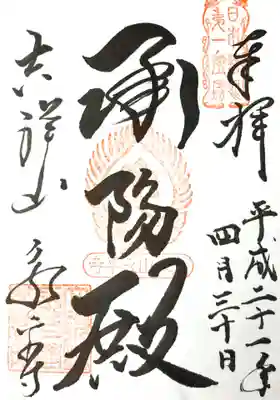 奉拝
平成二十一年
四月三十日
承陽殿
吉祥山 永平寺